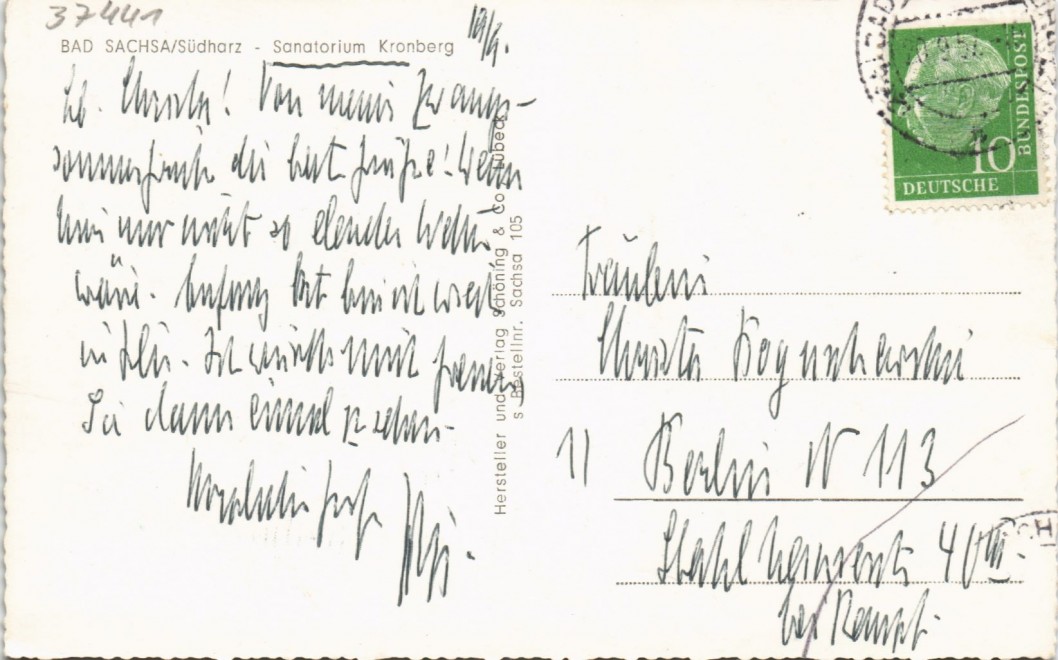 37441
19/9.
BAD SACHSA/Südharz - Sanatorium Kronberg
Lb. Christa! Von meiner Zwangs-
sommerfrische die best. Grüße! Wenn
hier nur nicht so elendes Wetter
wäre. Anfang Okt. bin ich wied.
in Bln. Ich würde mich freuen,
Sie dann einmal zu sehen.
Herzlichst Ihr
Hersteller und Verlag Schöning & Co., Lübeck
s Bestellnr. Sachsa 105
DEUTSCHE
BUNDESPOST
10
Fräulein
Christa
1) Berlin N 113
40 III.
bei Kempf.